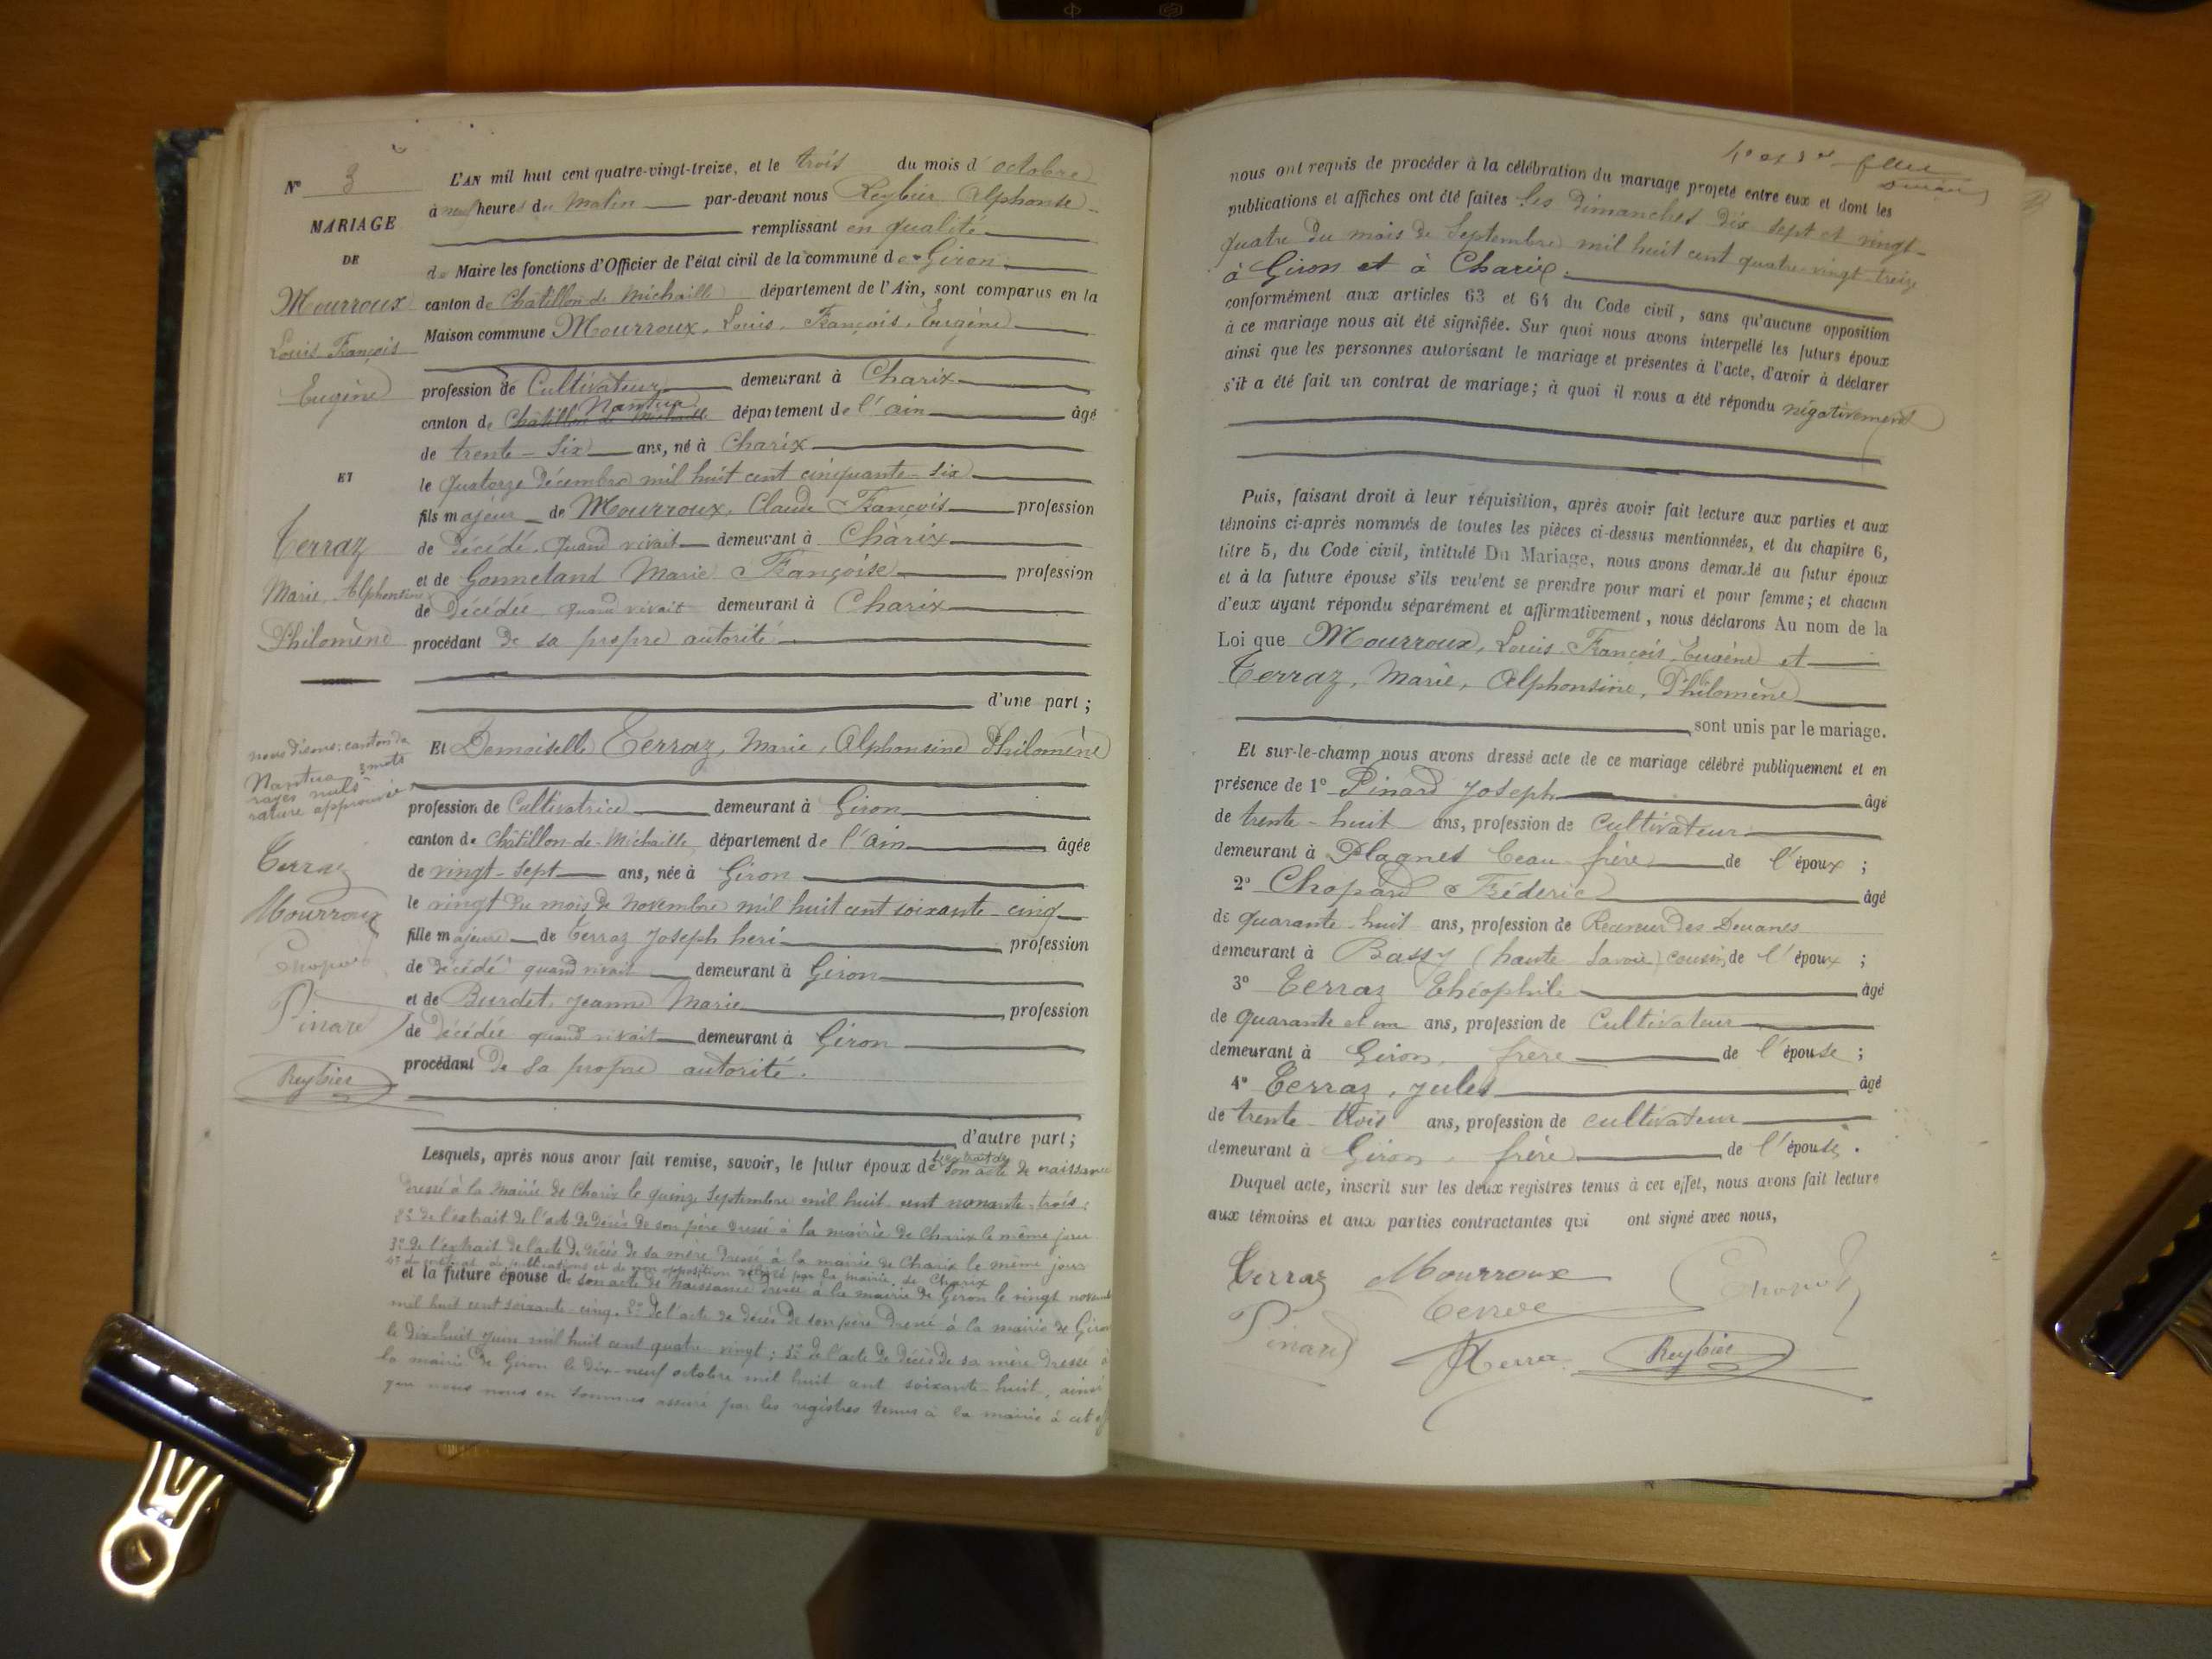 N° 3
MARIAGE
DE
Mourroux
Louis François
Eugène
ET
Terraz
Marie, Alphonsine
Philomène
nous disons: canton de
Nantua 3 mots
rayés nuls
rature approuvée
Terraz
Mourroux
Chopard
Pinard
Reybier
L'AN mil huit cent quatre-vingt-treize, et le trois du mois d'octobre
à neuf heures du Matin par-devant nous Reybier Alphonse
remplissant en qualité
de Maire les fonctions d'Officier de l'état civil de la commune de Giron
canton de Châtillon de Michaille département de l'Ain, sont comparus en la
Maison commune Mourroux, Louis, François, Eugène
profession de Cultivateur demeurant à Charix
Nantua
canton de Châtillon de Michaille département de l'ain âgé
de trente-six ans, né à Charix
le quatorze décembre mil huit cent cinquante-six
fils majeur de Mourroux, Claude François profession
de décédé, quand vivait demeurant à Charix
et de Gonneland Marie Françoise profession
de Décédée quand vivait demeurant à Charix
procédant de sa propre autorité
d'une part;
Et Demoiselle Terraz, Marie, Alphonsine Philomène
profession de Cultivatrice demeurant à Giron
canton de Châtillon-de-Michaille département de l'ain âgée
de vingt-sept ans, née à Giron
le vingt du mois de Novembre mil huit cent soixante-cinq
fille majeure de Terraz Joseph heri profession
de décédé quand vivait demeurant à Giron
et de Burdet, Jeanne Marie profession
de décédée quand vivait demeurant à Giron
procédant de sa propre autorité.
d'autre part;
Lesquels, après nous avoir fait remise, savoir, le futur époux de l'extrait de son acte de naissance
dressé à la Mairie de Charix le quinze Septembre mil huit cent nonante-trois;
2° de l'extrait de l'acte de décès de son père dressé à la mairie de Charix le même jour
3° de l'extrait de l'acte de décès de sa mère dressé à la mairie de Charix le même jour
4° du certificat de publications et de non opposition délivré par la mairie de Charix
et la future épouse de son acte de naissance dressé à la mairie de Giron le vingt novembre
mil huit cent soixante-cinq. 2° de l'acte de décès de son père dressé à la mairie de Giron
le dix-huit juin mil huit cent quatre-vingt; 3° de l'acte de décès de sa mère dressé à
la mairie de Giron le dix-neuf octobre mil huit cent soixante-huit, ainsi
que nous nous en sommes assuré par les registres tenus à la mairie à cet eff
nous ont requis de procéder à la célébration du mariage projeté entre eux et dont les
publications et affiches ont été faites les dimanches dix sept et vingt-
quatre du mois de Septembre mil huit cent quatre-vingt-treize
à Giron et à Charix.
conformément aux articles 63 et 64 du Code civil, sans qu'aucune opposition
à ce mariage nous ait été signifiée. Sur quoi nous avons interpellé les futurs époux
ainsi que les personnes autorisant le mariage et présentes à l'acte, d'avoir à déclarer
s'il a été fait un contrat de mariage; à quoi il nous a été répondu négativement
Puis, faisant droit à leur réquisition, après avoir fait lecture aux parties et aux
témoins ci-après nommés de toutes les pièces ci-dessus mentionnées, et du chapitre 6,
titre 5, du Code civil, intitulé Du Mariage, nous avons demandé au futur époux
et à la future épouse s'ils veulent se prendre pour mari et pour femme; et chacun
d'eux ayant répondu séparément et affirmativement, nous déclarons Au nom de la
Loi que Mourroux, Louis François, Eugène et
Terraz, Marie, Alphonsine, Philomène
sont unis par le mariage.
Et sur-le-champ nous avons dressé acte de ce mariage célébré publiquement et en
présence de 1° Pinard Joseph âgé
de trente-huit ans, profession de Cultivateur
demeurant à Plagnes beau-frère de l'époux;
2° Chopard Fréderic âgé
de quarante-huit ans, profession de Receveur des Douanes
demeurant à Bassy (haute Savoie) cousin de l'époux;
3° Terraz Théophile âgé
de quarante et un ans, profession de Cultivateur
demeurant à Giron, frère de l'épouse;
4° Terraz, Jules âgé
de trente-trois ans, profession de cultivateur
demeurant à Giron, frère de l'épouse.
Duquel acte, inscrit sur les deux registres tenus à cet effet, nous avons fait lecture
aux témoins et aux parties contractantes qui ont signé avec nous,
Terraz Mourroux Chopard
Pinard Reybier